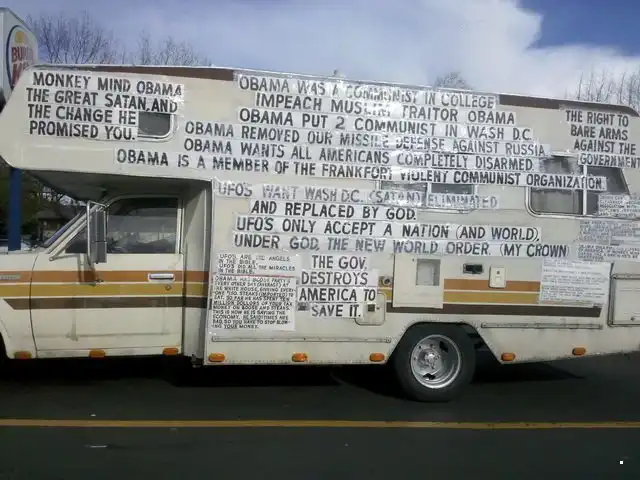 MONKEY MIND OBAMA
THE GREAT SATAN, AND
THE CHANGE HE
PROMISED YOU.
OBAMA WAS A COMMUNIST IN COLLEGE
IMPEACH MUSLIM TRAITOR OBAMA
OBAMA PUT 2 COMMUNIST IN WASH D.C.
OBAMA REMOVED OUR MISSILE DEFENSE AGAINST RUSSIA
OBAMA WANTS ALL AMERICANS COMPLETELY DISARMED
OBAMA IS A MEMBER OF THE FRANKFORT VIOLENT COMMUNIST ORGANIZATION
THE RIGHT TO
BARE ARMS
AGAINST THE
GOVERNMEN
UFO'S WANT WASH D.C. (SATAN) ELIMINATED
AND REPLACED BY GOD.
UFO'S ONLY ACCEPT A NATION (AND WORLD)
UNDER GOD. THE NEW WORLD ORDER. (MY CROWN)
UFO'S ARE THE ANGELS
IN THE BIBLE.
UFO'S ALL THE MIRACLES
IN THE BIBLE.
EVERY OTHER DAY (AVERAGE) AT
THE WHITE HOUSE, GIVING EVERY
MILLION DOLLARS OF YOUR TAX
MONEY ON BOOZE AND STEAKS.
THIS IS HOW HE IS SAVING THE
ECONOMY. HE SAID TIMES ARE
BAD SO YOU HAVE TO STOP BLOW-
ING YOUR MONEY.
THE GOV.
DESTROYS
AMERICA TO
SAVE IT.